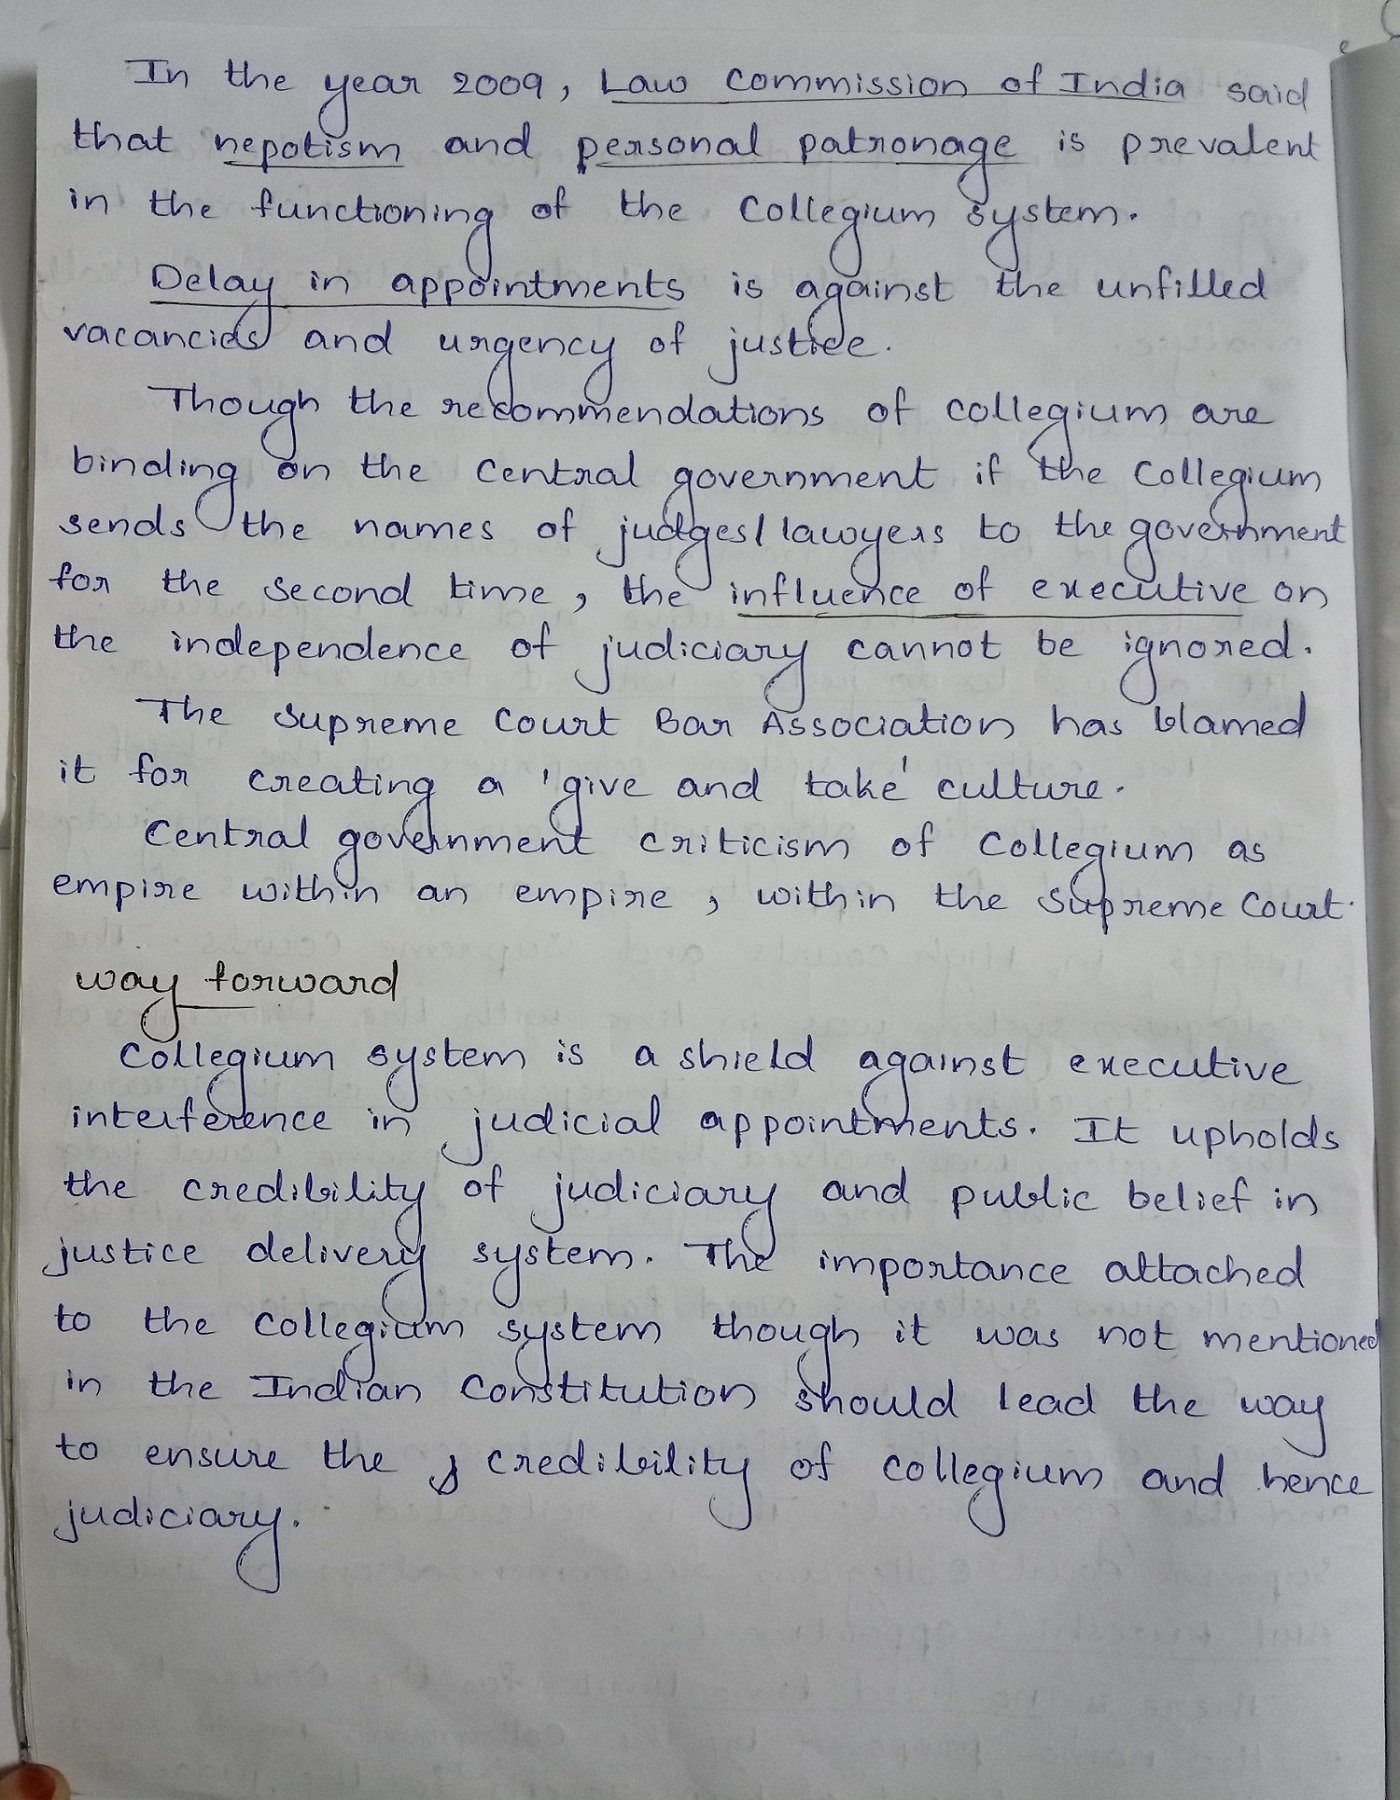 In the year 2009, Law Commission of India said
that nepotism and personal patronage is prevalent
in the functioning of the Collegium system.
Delay in appointments is against the unfilled
vacancies and urgency of justice.
Though the recommendations of collegium are
binding on the central government if the collegium
sends the names of judges/lawyers to the government
for the second time, the influence of executive on
the independence of judiciary cannot be ignored.
The Supreme Court Bar Association has blamed
it for creating a 'give and take' culture.
Central government criticism of collegium as
empire within an empire, within the Supreme Court.
way forward
Collegium system is a shield against executive
interference in judicial appointments. It upholds
the credibility of judiciary and public belief in
justice delivery system. The importance attached
to the collegium system though it was not mentioned
in the Indian Constitution should lead the way
to ensure the credibility of collegium and hence
judiciary.